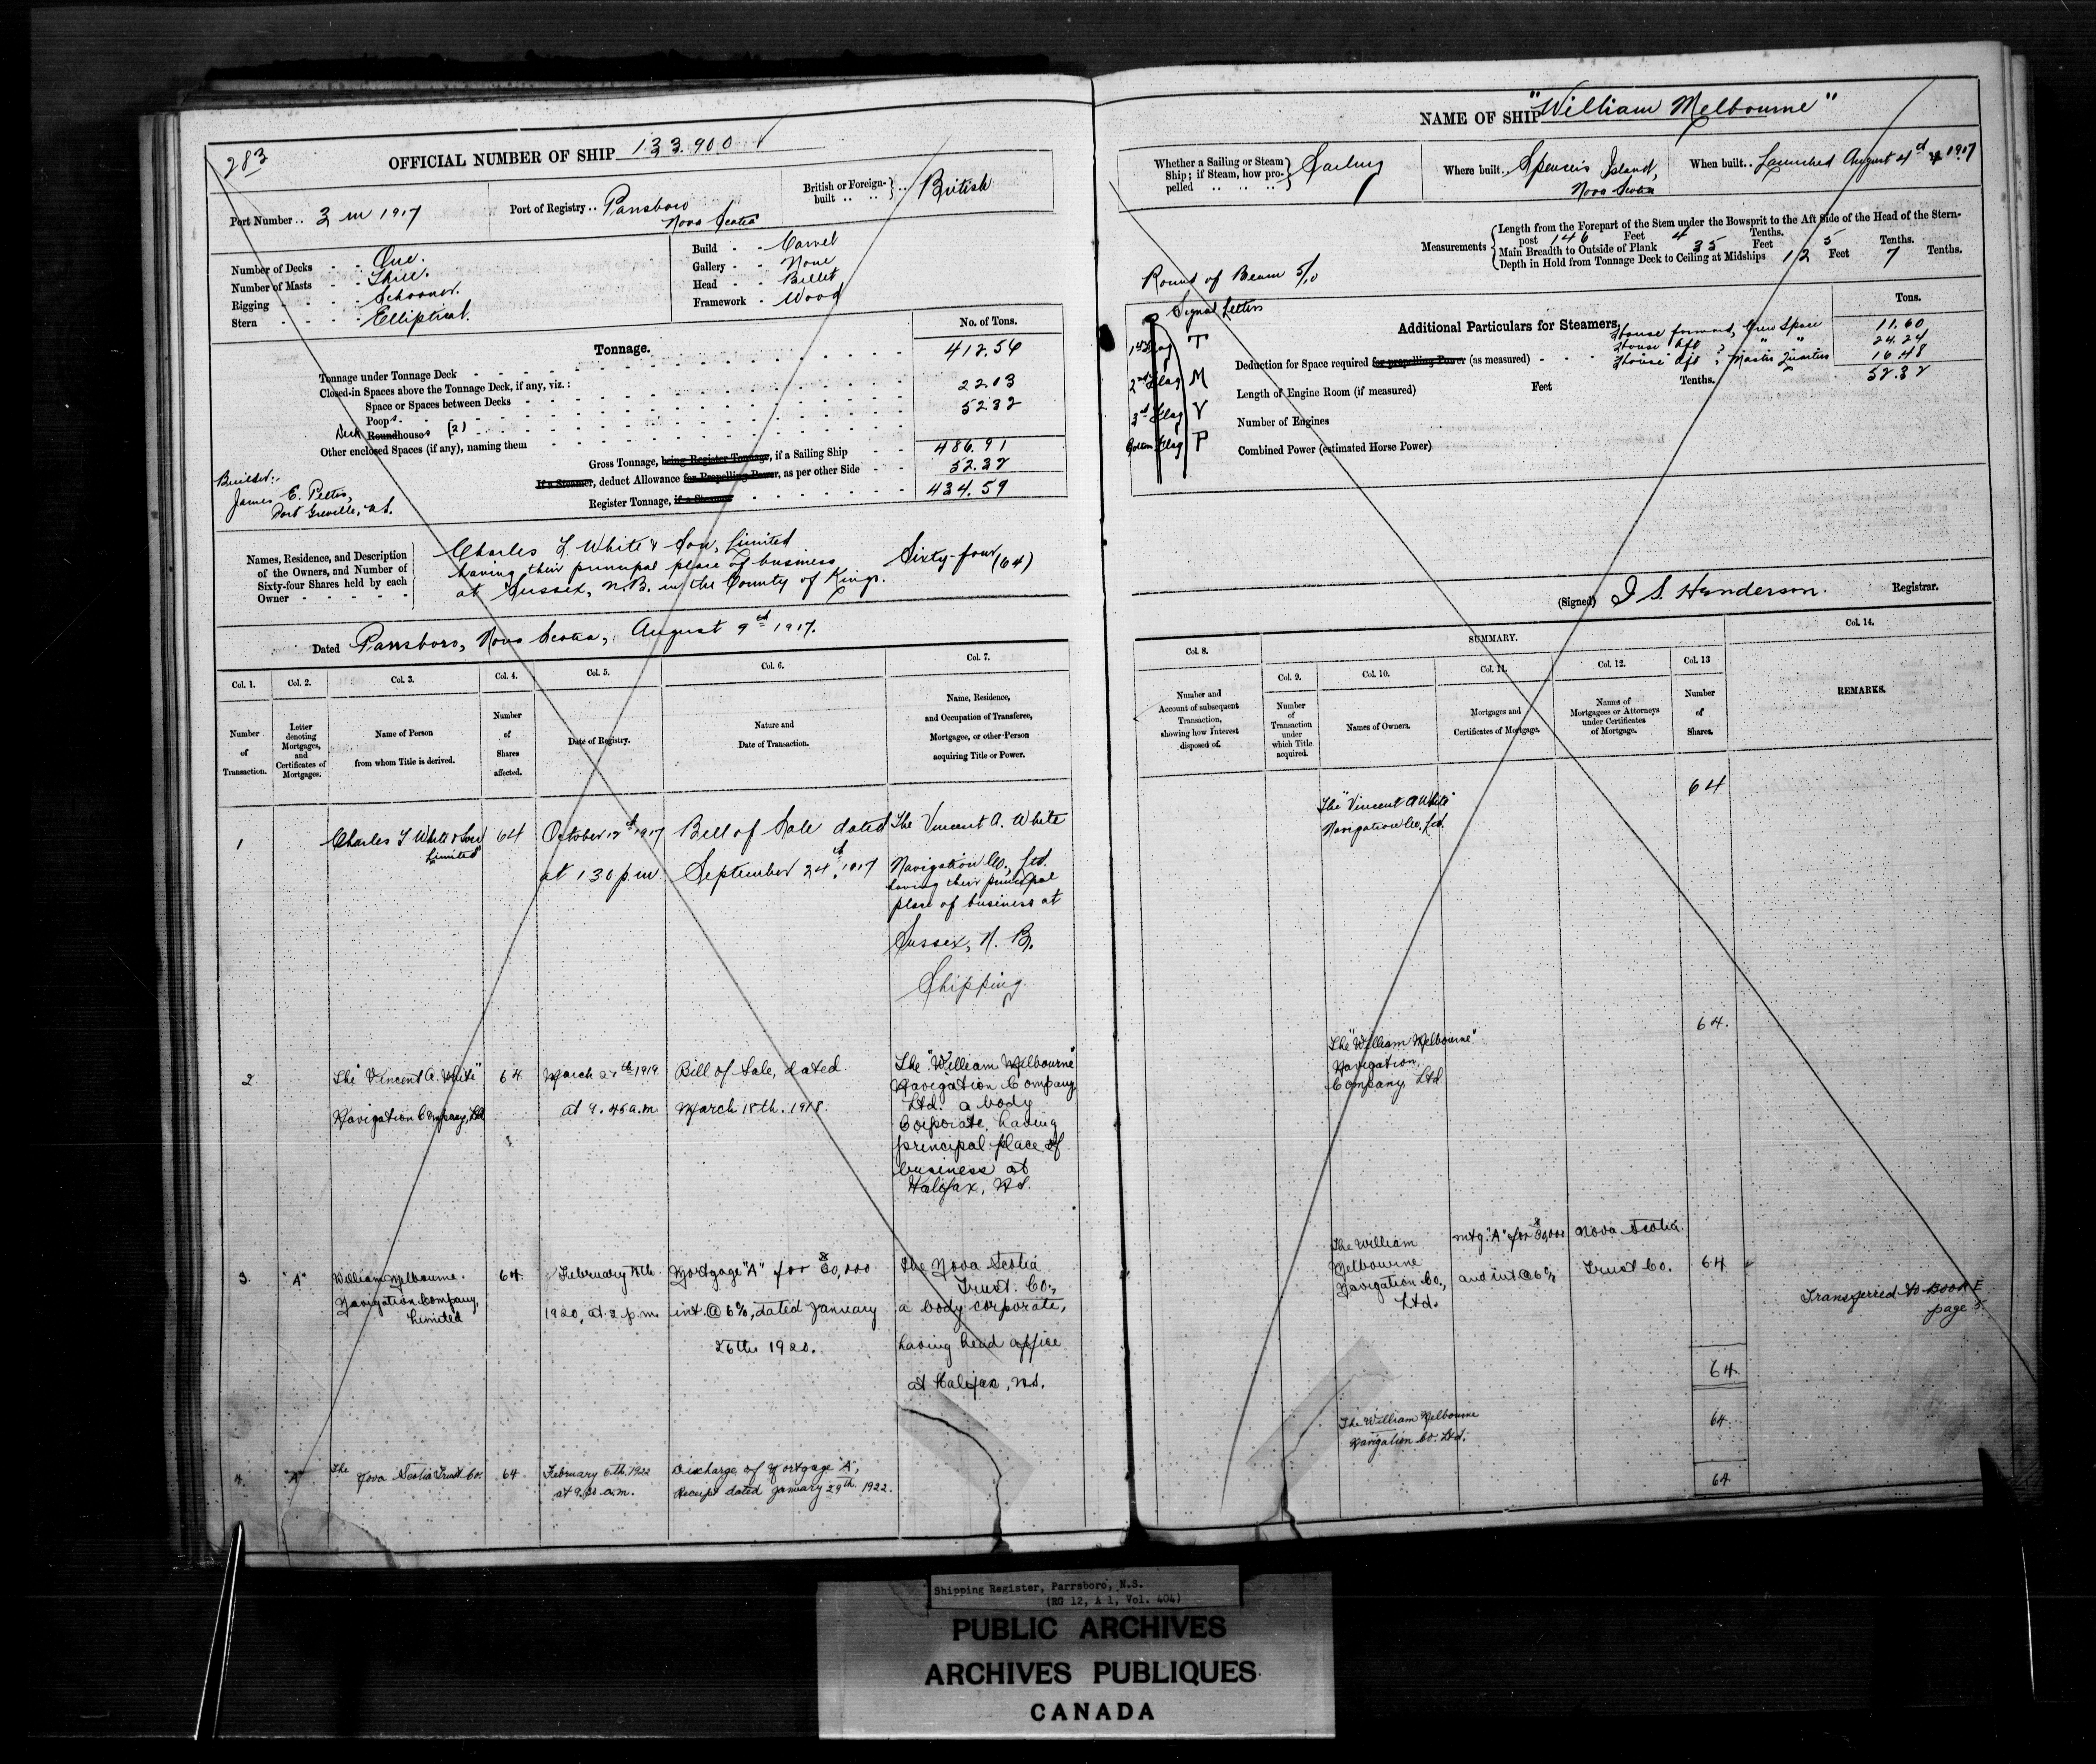 283
OFFICIAL NUMBER OF SHIP 133.900
Port Number .. 3 in 1917
Port of Registry .. Parrsboro Nova Scotia
British or Foreign-built .. .. British
Number of Decks - - One.
Number of Masts - - Three.
Rigging - - - - Schooner.
Stern - - - - Elliptical.
Build - - Carvel
Gallery - - None
Head - - Billet
Framework - Wood
Tonnage.
No. of Tons.
Tonnage under Tonnage Deck 412.56
Closed-in Spaces above the Tonnage Deck, if any, viz.:
Space or Spaces between Decks
Poop 22.03
Deck Roundhouses (2) 52.32
Other enclosed Spaces (if any), naming them
Gross Tonnage, being Register Tonnage, if a Sailing Ship 486.91
If a Steamer, deduct Allowance for Propelling Power, as per other Side 52.32
Register Tonnage, if a Steamer 434.59
Builder:
James E. Pettis,
Port Greville, N.S.
Names, Residence, and Description
of the Owners, and Number of
Sixty-four Shares held by each
Owner
Charles T. White & Son, Limited
having their principal place of business
at Sussex, N.B. in the County of Kings.
Sixty-four (64)
Dated Parrsboro, Nova Scotia, August 9th 1917.
Col. 1. Col. 2. Col. 3. Col. 4. Col. 5. Col. 6. Col. 7.
Number of Transaction.
Letter denoting Mortgages, and Certificates of Mortgages.
Name of Person from whom Title is derived.
Number of Shares affected.
Date of Registry.
Nature and Date of Transaction.
Name, Residence, and Occupation of Transferee, Mortgagee, or other Person acquiring Title or Power.
1
Charles T White & Son
Limited
64
October 12th 1917
at 1 30 p.m
Bill of Sale dated
September 24th 1917
The Vincent A. White
Navigation Co., Ltd.
having their principal
place of business at
Sussex, N. B.
Shipping
2
The "Vincent A. White"
Navigation Company, Ltd
64
March 1919
at 9.45 a.m
Bill of Sale, dated
March 18th. 1918.
The "William Melbourne"
Navigation Company
Ltd. a body
Corporate, having
principal place of
business at
Halifax, N.S.
3.
"A"
William Melbourne
Navigation Company,
Limited
64
February
1920, at 2 p.m.
Mortgage "A" for $30,000
int. @ 6%, dated January
26th 1920.
The Nova Scotia
Trust. Co.,
a body corporate,
having head office
at Halifax, N.S.
4.
"A"
The Nova Scotia Trust Co.
64
February 6th. 1922
at 9.30 a.m.
Discharge of Mortgage "A",
Receipt dated January 29th 1922.
NAME OF SHIP "William Melbourne"
Whether a Sailing or Steam Ship; if Steam, how propelled .. .. .. Sailing
Where built.. Spencer's Island, Nova Scotia
When built .. Launched August 4th 1917
Measurements
Length from the Forepart of the Stem under the Bowsprit to the Aft Side of the Head of the Stern-
post 146 Feet 4 Tenths.
Main Breadth to Outside of Plank 35 Feet 5 Tenths.
Depth in Hold from Tonnage Deck to Ceiling at Midships 12 Feet 7 Tenths.
Round of Beam 5/10
Signal Letters
1st Flag T
2nd Flag M
3rd Flag V
Bottom Flag P
Additional Particulars for Steamers.
Tons.
House forward, Crew Space 11.60
House Aft, " " 24.24
House Aft, Master Quarters 16.48
52.32
Deduction for Space required for propelling Power (as measured)
Length of Engine Room (if measured) Feet Tenths.
Number of Engines
Combined Power (estimated Horse Power)
(Signed) J S. Henderson. Registrar.
SUMMARY.
Col. 8. Col. 9. Col. 10. Col. 11. Col. 12. Col. 13 Col. 14.
Number and Account of subsequent Transaction, showing how Interest disposed of.
Number of Transaction under which Title acquired.
Names of Owners.
Mortgages and Certificates of Mortgage.
Names of Mortgagees or Attorneys under Certificates of Mortgage.
Number of Shares.
REMARKS.
The "Vincent A White"
Navigation Co., Ltd.
64
The "William Melbourne"
Navigation
Company Ltd
64.
The William
Melbourne
Navigation Co.,
Ltd.
Mtg. "A" for $30,000
and int @ 6%
Nova Scotia
Trust Co.
64
Transferred to Book E
page 5.
64.
The William Melbourne
Navigation Co. Ltd.
64.
64
Shipping Register, Parrsboro, N.S.
(RG 12, A 1, Vol. 404)
PUBLIC ARCHIVES
ARCHIVES PUBLIQUES
CANADA